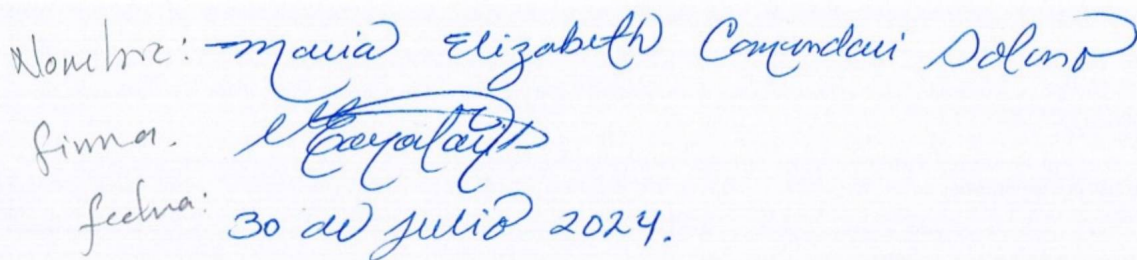 Nombre: Maria Elizabeth Comandari Solano
firma.
fecha: 30 de julio 2024.